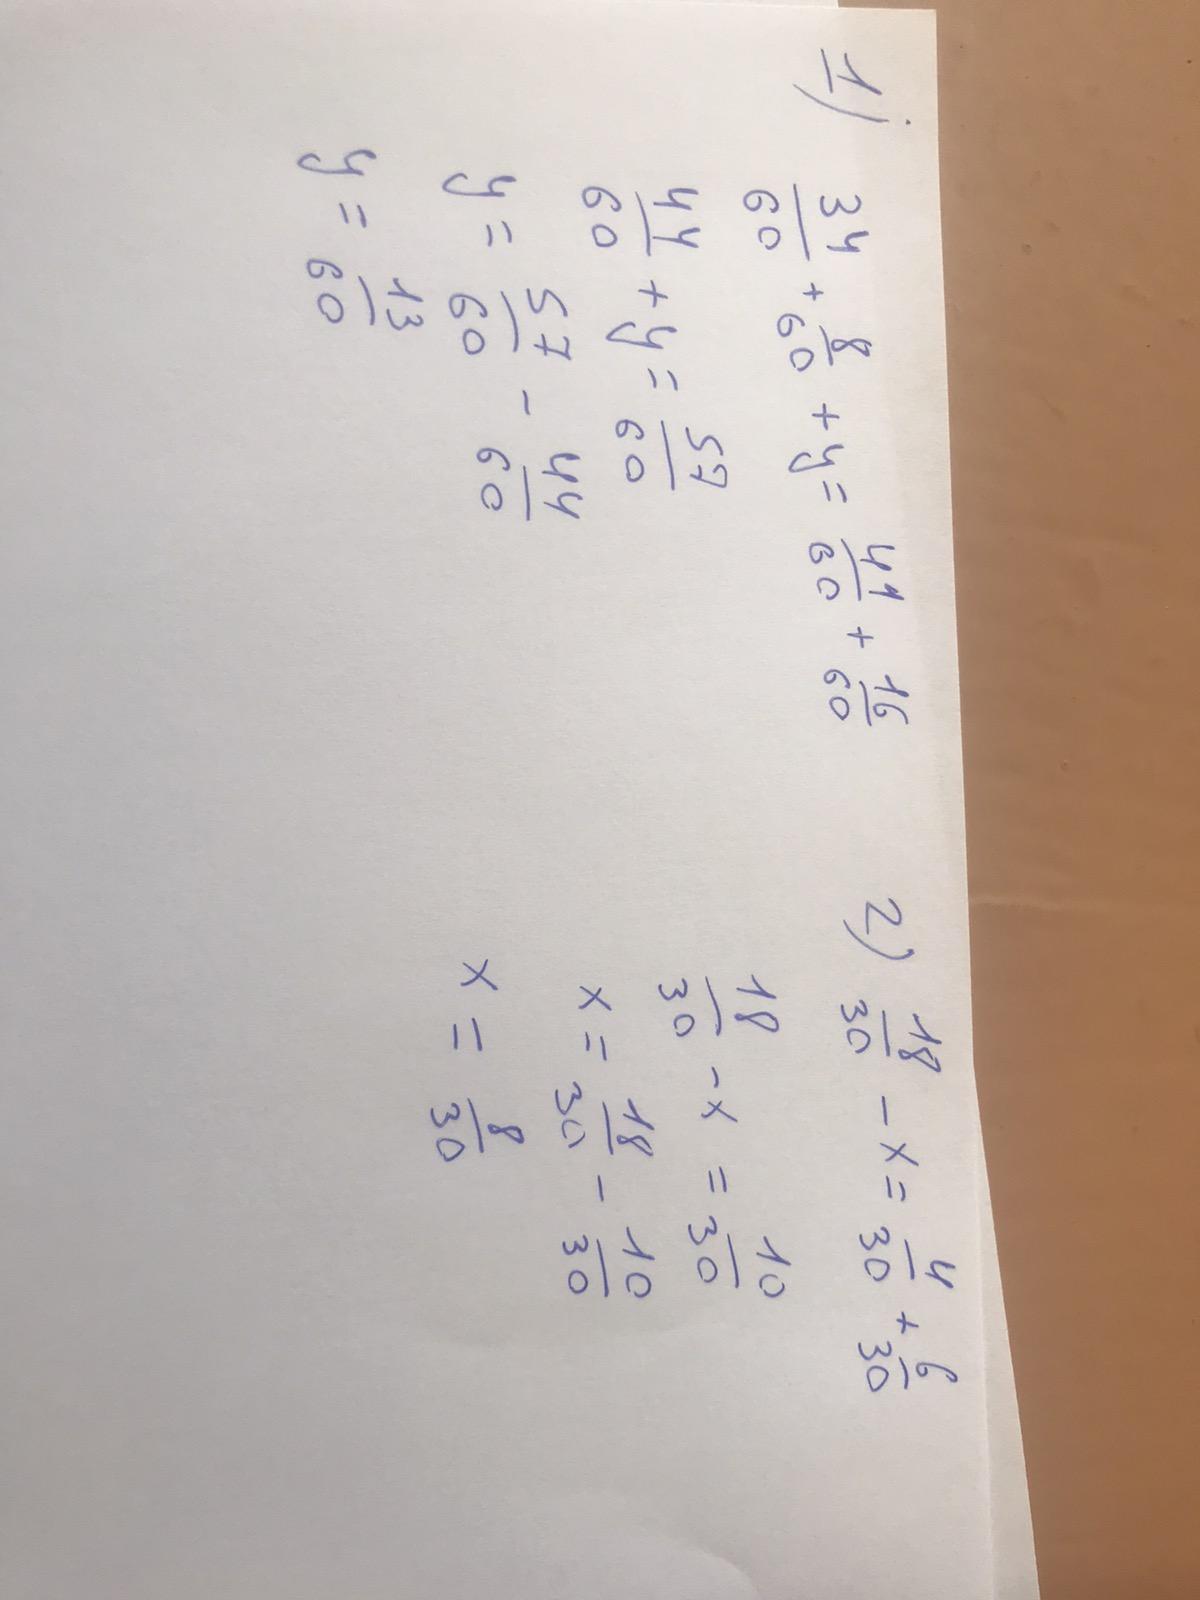 1) 34/60 + 8/60 + y = 41/60 + 16/60
44/60 + y = 57/60
y = 57/60 - 44/60
y = 13/60
2) 18/30 - x = 4/30 + 6/30
18/30 - x = 10/30
x = 18/30 - 10/30
x = 8/30